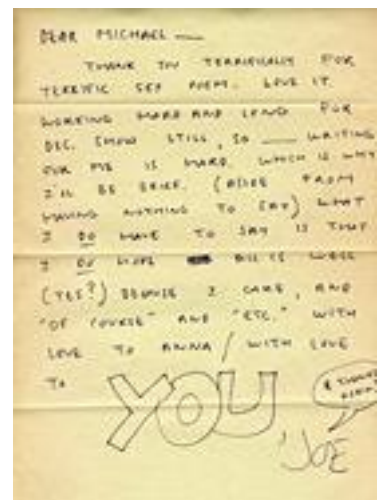 DEAR MICHAEL —
THANK YOU TERRIFICALLY FOR
TERRIFIC SEX POEM. LOVE IT.
WORKING HARD AND LONG FOR
DEC. SHOW STILL, SO — WRITING
FOR ME IS HARD. WHICH IS WHY
I'LL BE BRIEF. (ASIDE FROM
HAVING NOTHING TO SAY) WHAT
I DO HAVE TO SAY IS THAT
I DO HOPE ALL IS WELL
(YES?) BECAUSE I CARE, AND
"OF COURSE" AND "ETC." WITH
LOVE TO ANNA / WITH LOVE
TO YOU
& THANKS
AGAIN!
JOE